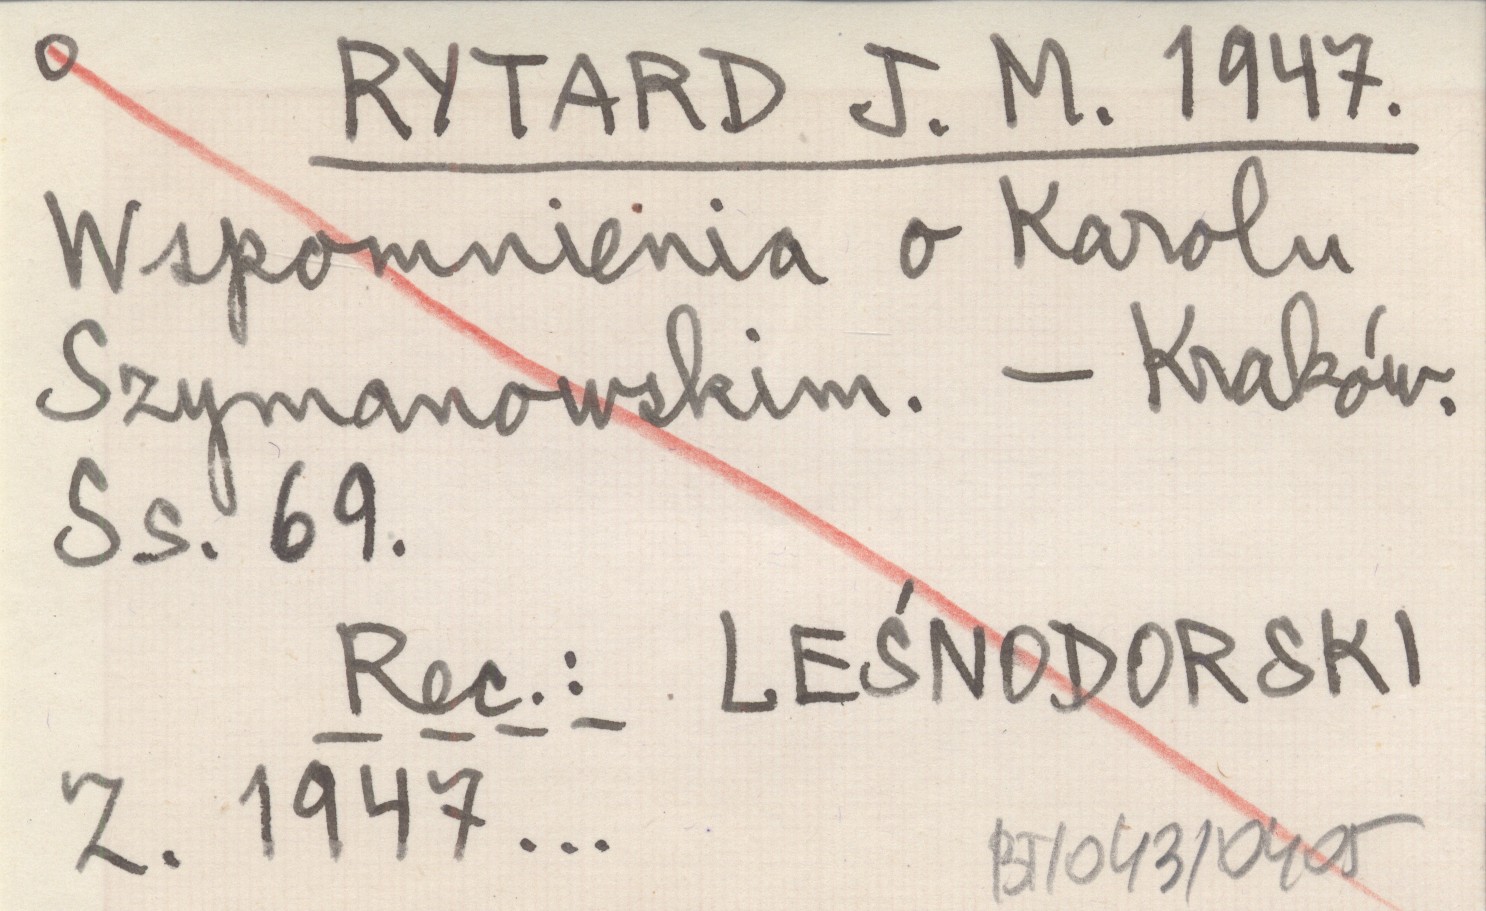 RYTARD J. M. 1947.
Wspomnienia o Karolu
Szymanowskim. — Kraków.
Ss. 69.
Rec.: LEŚNODORSKI
Z. 1947...
BT/043/0405